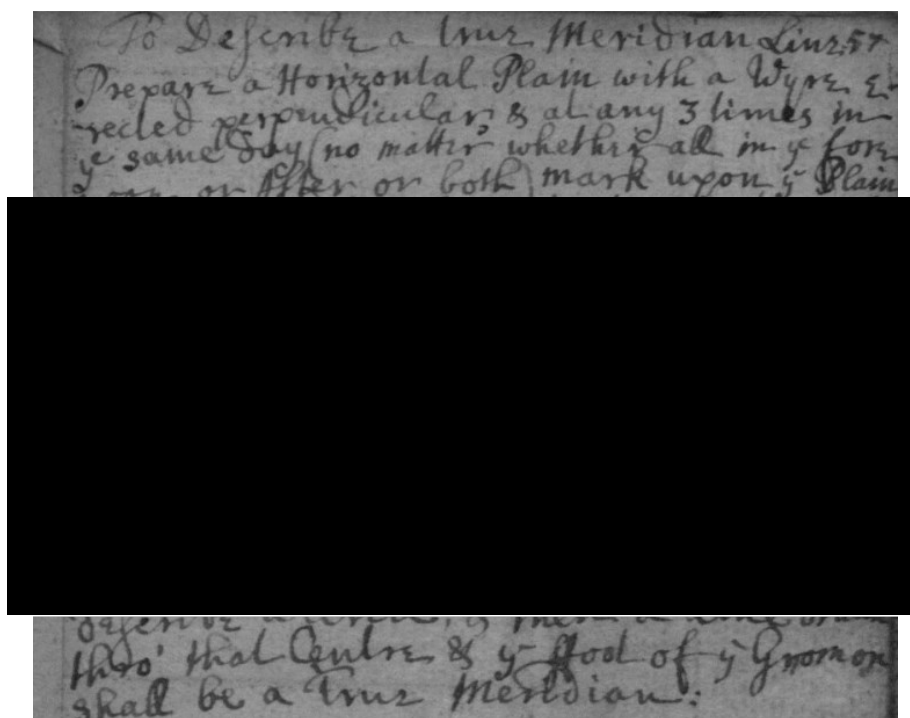 To Describe a true Meridian Line. 57
Prepare a Horizontal Plain with a Wyre E-
rected perpendicular & at any 3 times in
ye same Day (no matter whether all in ye fore
or After or both) mark upon ye Plain
describe a
thro' that Centre & ye ffoot of ye Gnomon
shall be a True Meridian: